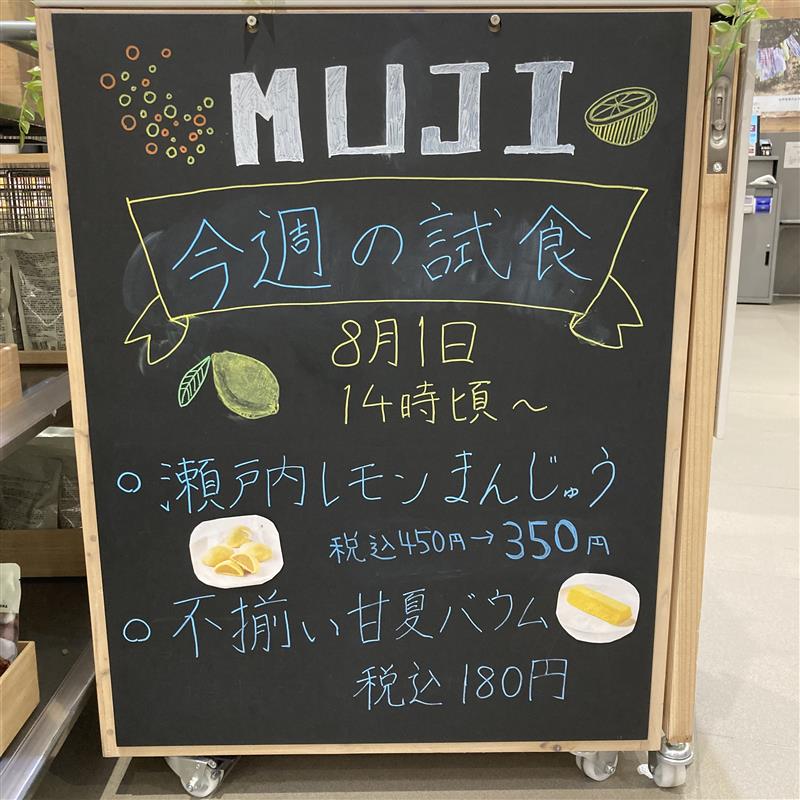 MUJI
今週の試食
8月1日
14時頃～
○ 瀬戸内レモンまんじゅう
税込450円→350円
○ 不揃い甘夏バウム
税込180円